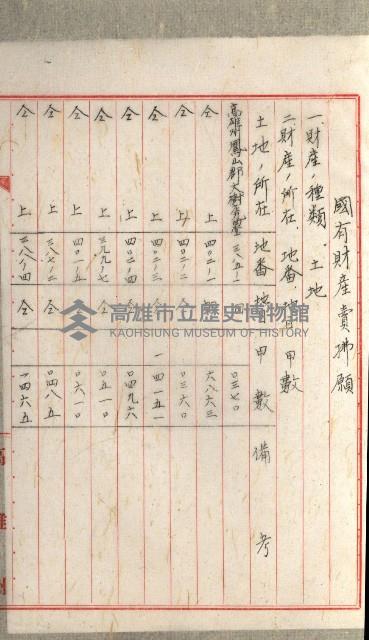 國有財產賣拂願
一、財產ノ種類 土地
二、財產ノ所在、地番、地目、甲數
土地ノ所在 地番 地目 甲數 備考
高雄州鳳山郡大樹庄 三八ノ五ノ一 〇三七〇
仝上 四〇二ノ一 仝 六八六三
仝上 四〇二ノ二 仝 〇三六〇
仝上 四〇二ノ三 仝 一四一五一
仝上 四〇二ノ四 仝 〇四九六
仝上 三九九ノ七 仝 〇五一〇
仝上 三八八ノ一 仝 〇六一〇
仝上 三八七ノ二 仝 〇四八五
仝上 三八八ノ四 仝 一四六五
高雄州
高雄市立歷史博物館
KAOHSIUNG MUSEUM OF HISTORY